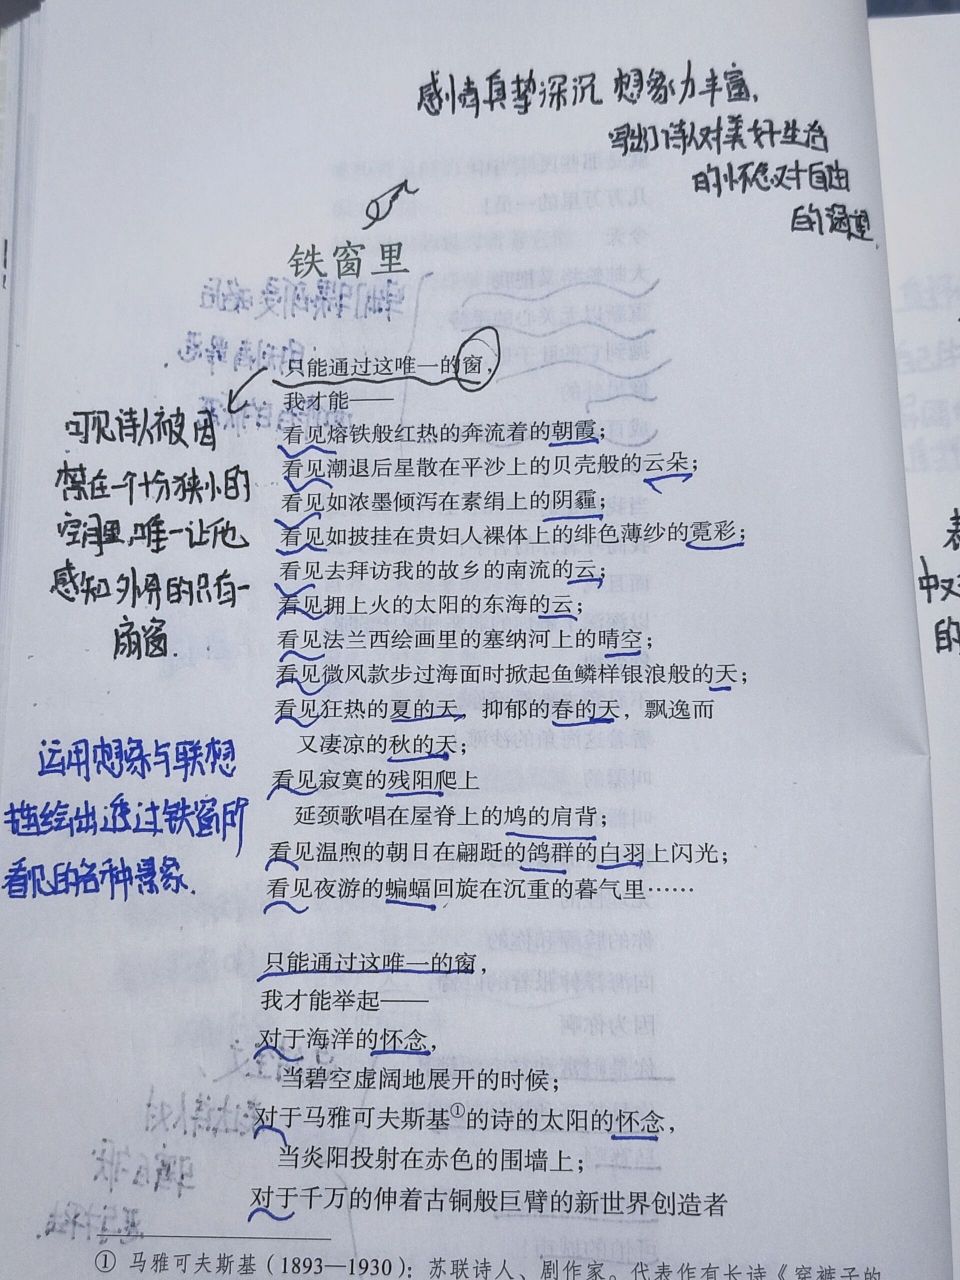 感情真挚深沉 想象力丰富,
写出了诗人对美好生活
的怀念对自由
的渴望.
铁窗里
只能通过这唯一的窗，
我才能——
看见熔铁般红热的奔流着的朝霞；
看见潮退后星散在平沙上的贝壳般的云朵；
看见如浓墨倾泻在素绢上的阴霾；
看见如披挂在贵妇人裸体上的绯色薄纱的霓彩；
看见去拜访我的故乡的南流的云；
看见拥上火的太阳的东海的云；
看见法兰西绘画里的塞纳河上的晴空；
看见微风款步过海面时掀起鱼鳞样银浪般的天；
看见狂热的夏的天，抑郁的春的天，飘逸而
又凄凉的秋的天；
看见寂寞的残阳爬上
延颈歌唱在屋脊上的鸠的肩背；
看见温煦的朝日在翩跹的鸽群的白羽上闪光；
看见夜游的蝙蝠回旋在沉重的暮气里……
可见诗人被囚
禁在一个十分狭小的
空间里,唯一让他
感知外界的只有一
扇窗.
运用想象与联想
描绘出透过铁窗所
看见的各种景象.
只能通过这唯一的窗，
我才能举起——
对于海洋的怀念，
当碧空虚阔地展开的时候；
对于马雅可夫斯基①的诗的太阳的怀念，
当炎阳投射在赤色的围墙上；
对于千万的伸着古铜般巨臂的新世界创造者
① 马雅可夫斯基（1893—1930）：苏联诗人、剧作家。代表作有长诗《穿裤子的